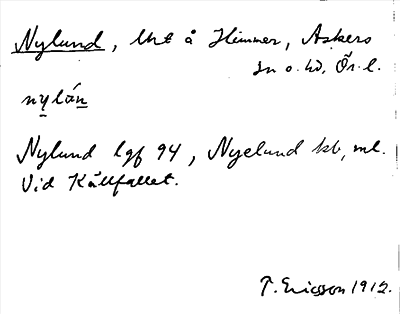 Nylund, lht å Himmer, Askers
sn o. hd, Ör. l.
nylán
Nylund lgf 94, Nyelund kb, ml.
Vid Källfallet.
T. Ericsson 1912.